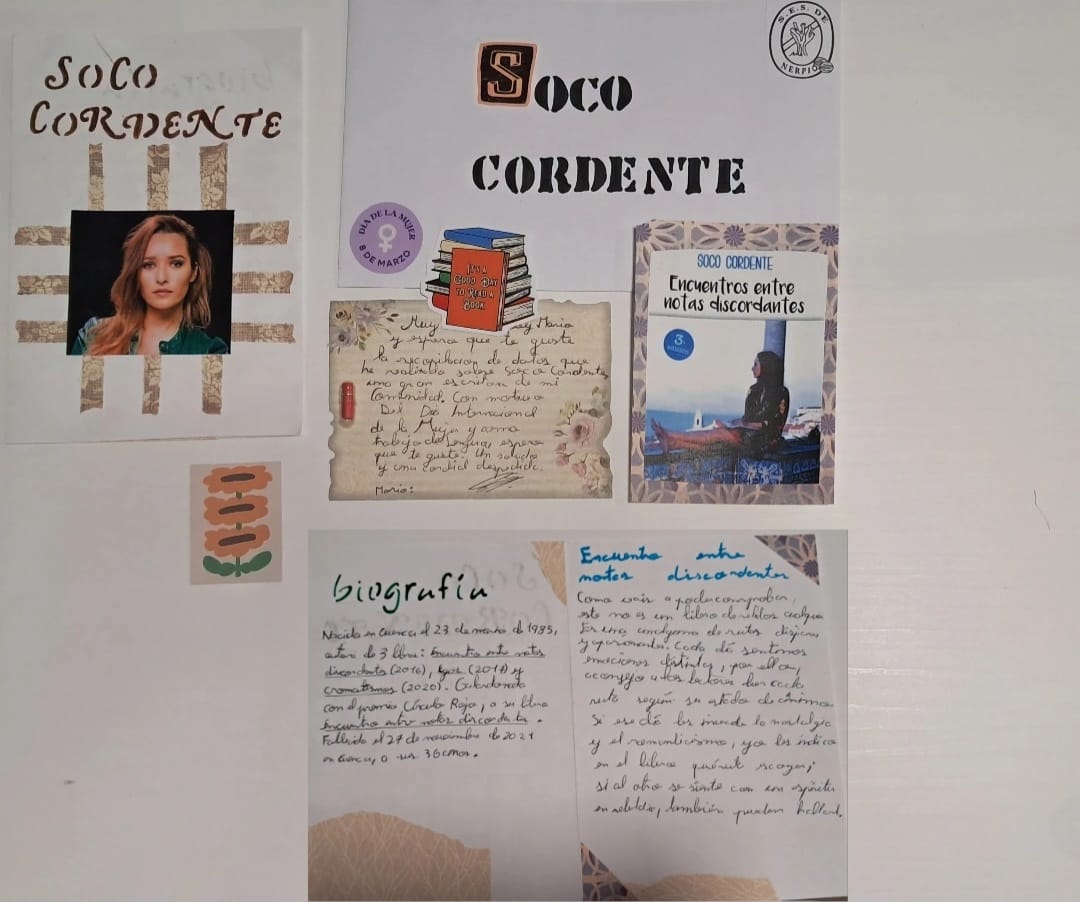 SOCO
CORDENTE
SOCO
CORDENTE
S.E.S. DE
NERPIO
DÍA DE LA MUJER
8 DE MARZO
IT'S A
GOOD DAY
TO READ A
BOOK
SOCO CORDENTE
Encuentros entre
notas discordantes
3
edición
Muy Mario
y espero que te guste
la recopilacion de datos que
he realizado sobre Soco Cordente,
una gran escritora de mi
Comunidad. Con motivo
Del Día Internacional
de la Mujer y como
trabajo de Lengua, espero
que te guste. Un saludo
y una cordial despedida.
Mario:
biografía
Nacida en Cuenca el 23 de marzo de 1985,
autora de 3 libros: Encuentro entre notas
discordantes (2016), (2017) y
cromatismos (2020). Galardonada
con el premio Círculo Rojo, a su libro
Encuentro entre notas discordantes.
Fallecida el 27 de noviembre de 2021
en Cuenca, a sus 36 años.
Encuentro entre
notas discordantes
Como vais a poder comprobar,
este no es un libro de relatos cualquiera
Es una de
y Cada día sentimos
emociones distintas, por ello,
aconsejo a los lectores leer cada
según su estado de ánimo.
Si ese día les invade la nostalgia
y el romanticismo, ya les indico
en el libro escoger;
si al otro se siente con un espíritu
en rebeldía, también pueden